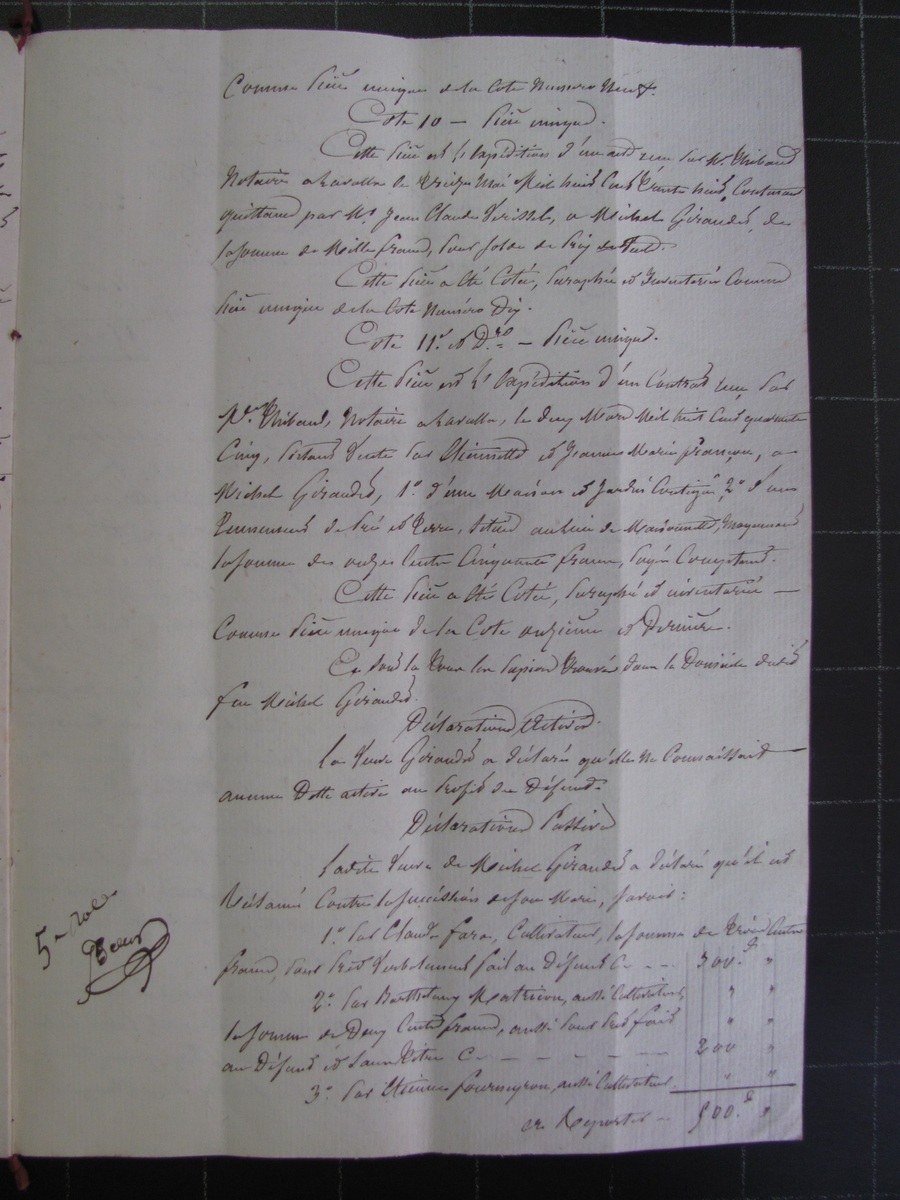 Comme pièce unique de la Cote Numéro Neuf.
Cote 10 — pièce unique.
Cette pièce est l'expédition d'un acte reçu par Me Thibaud
Notaire a le treize Mai Mil huit Cent trente huit, Contenant
quittance par Mr Jean Claude a Michel Giraudet, de
la somme de Mille francs, pour solde de prix de
Cette pièce a été Cotée, paraphée et Inventoriée Comme
pièce unique de la Cote Numéro Dix.
Cote 11e et Dre — pièce unique.
Cette pièce est l'expédition d'un Contrat reçu par
Me Thibaud, Notaire a le deux Mars Mil huit Cent quarante
Cinq, portant Vente par Etiennette et Jeanne Marie françon, a
Michel Giraudet, 1o d'une Maison et Jardin Contigu, 2o d'un
tennement de pré et terre, situés au lieu de Maisonnette, Moyennant
la somme de onze Cents Cinquante francs, payés Comptant.
Cette pièce a été Cotée, paraphée et inventoriée —
Comme pièce unique de la Cote onzième et Dernière.
Ce sont là tous les papiers trouvés dans le Domicile dudit
feu Michel Giraudet.
Déclarations Actives.
La Veuve Giraudet a déclaré qu'elle ne Connaissait —
aucune Dette active au profit du Défunt.
Déclarations Passives
Ladite Veuve de Michel Giraudet a déclaré qu'il est
Réclamé Contre la succession de son Mari, savoir :
1o par Claude fara, Cultivateur, la somme de trois Cents
francs, pour prêt Verbalement fait au Défunt C - - - 300.f "
2o par Barthélemy Matricon, aussi Cultivateur, " "
la somme de Deux Cents francs, aussi pour prêt fait " "
au Défunt et sans titre C - - - - - - - 200 "
3o par Etienne fourneyron, aussi Cultivateur " "
a Reporter — 500.f "
5e rôle